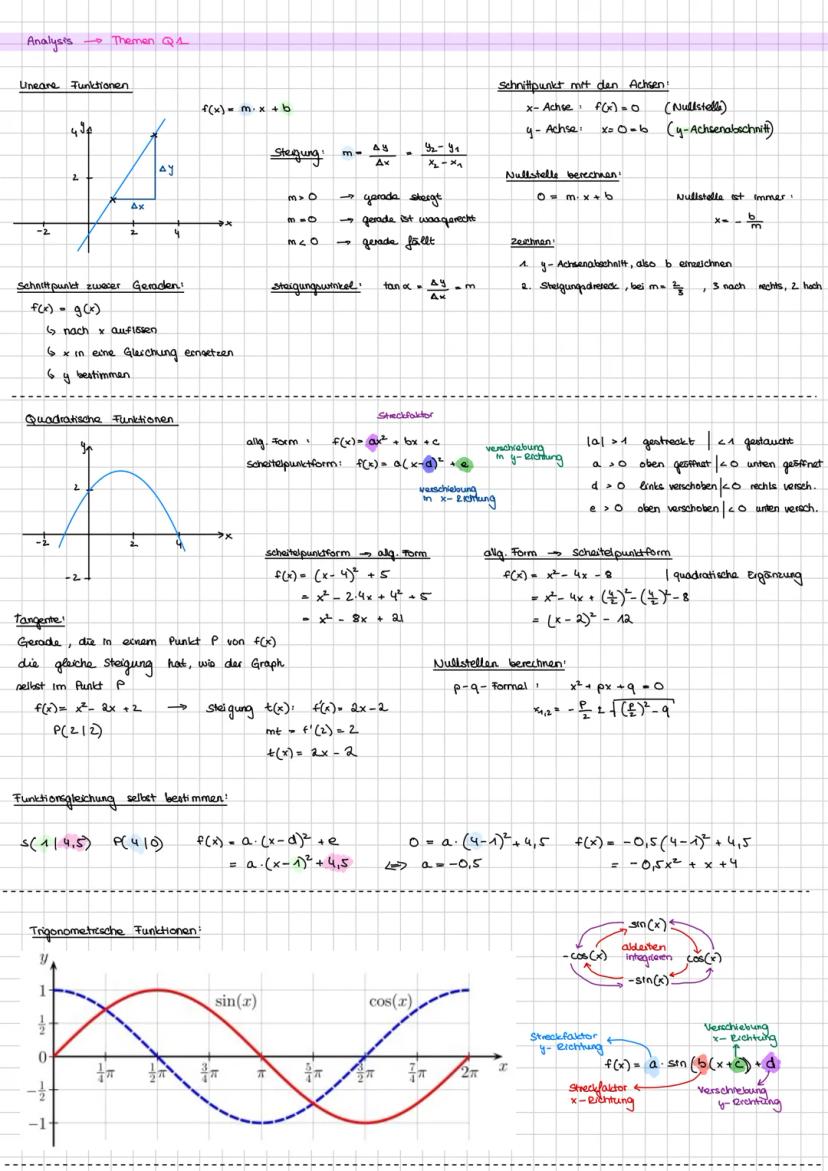 Analysis → Themen Q1
Lineare Funktionen
f(x) = m · x + b
y
4
2
Δy
Δx
-2 2 4 x
Steigung: m = Δy/Δx = (y₂ - y₁)/(x₂ - x₁)
m > 0 → gerade steigt
m = 0 → gerade ist waagerecht
m < 0 → gerade fällt
Steigungswinkel: tan α = Δy/Δx = m
Schnittpunkt zweier Geraden:
f(x) = g(x)
↳ nach x auflösen
↳ x in eine Gleichung einsetzen
↳ y bestimmen
Schnittpunkt mit den Achsen:
x-Achse: f(x) = 0 (Nullstelle)
y-Achse: x = 0 = b (y-Achsenabschnitt)
Nullstelle berechnen:
0 = m · x + b
Nullstelle ist immer:
x = - b/m
Zeichnen:
1. y-Achsenabschnitt, also b einzeichnen
2. Steigungsdreieck, bei m = 2/3, 3 nach rechts, 2 hoch
Quadratische Funktionen
y
2
-2 2 4 x
-2
Streckfaktor
allg. Form: f(x) = ax² + bx + c
Scheitelpunktform: f(x) = a(x-d)² + e
Verschiebung in y-Richtung
Verschiebung in x-Richtung
|a| > 1 gestreckt | < 1 gestaucht
a > 0 oben geöffnet | < 0 unten geöffnet
d > 0 links verschoben | < 0 rechts versch.
e > 0 oben verschoben | < 0 unten versch.
Scheitelpunktform → allg. Form
f(x) = (x-4)² + 5
= x² - 2·4x + 4² + 5
= x² - 8x + 21
allg. Form → Scheitelpunktform
f(x) = x² - 4x - 8 | quadratische Ergänzung
= x² - 4x + (4/2)² - (4/2)² - 8
= (x-2)² - 12
Tangente:
Gerade, die in einem Punkt P von f(x)
die gleiche Steigung hat, wie der Graph
selbst im Punkt P
f(x) = x² - 2x + 2 → Steigung t(x): f'(x) = 2x - 2
P(2|2)
mt = f'(2) = 2
t(x) = 2x - 2
Nullstellen berechnen:
p-q-Formel: x² + px + q = 0
x₁,₂ = - p/2 ± √((p/2)² - q)
Funktionsgleichung selbst bestimmen:
S(1|4,5) P(4|0) f(x) = a · (x-d)² + e
= a · (x-1)² + 4,5
0 = a · (4-1)² + 4,5
⇔ a = -0,5
f(x) = -0,5(4-1)² + 4,5
= -0,5x² + x + 4
Trigonometrische Funktionen:
y
1
1/2
0
-1/2
-1
sin(x) cos(x)
1/4π 1/2π 3/4π π 5/4π 3/2π 7/4π 2π x
sin(x)
-cos(x) ableiten cos(x)
integrieren
-sin(x)
Streckfaktor y-Richtung
Verschiebung x-Richtung
f(x) = a · sin(b(x+c)) + d
Streckfaktor x-Richtung
Verschiebung y-Richtung